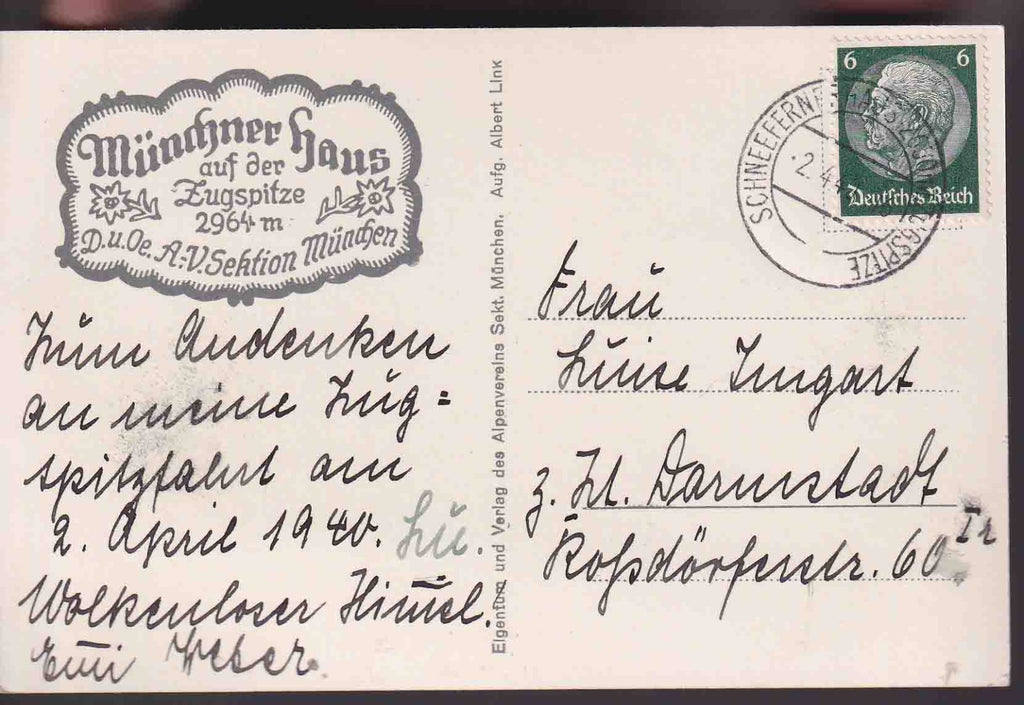 Münchner Haus
auf der
Zugspitze
2964 m
D.u.Oe.A.-V. Sektion München
Zum Andenken
an meine Zug=
spitzfahrt am
2. April 1940. Lu.
Wolkenloser Him̅el.
Em̅i Weber.
Eigentum und Verlag des Alpenvereins Sekt. München. Aufg. Albert Link
6 6
Deutsches Reich
SCHNEEFERNERHAUS ZUGSPITZE
2.4.
Frau
Luise Imgart
z. Zt. Darmstadt
Roßdörferstr. 60 Ir